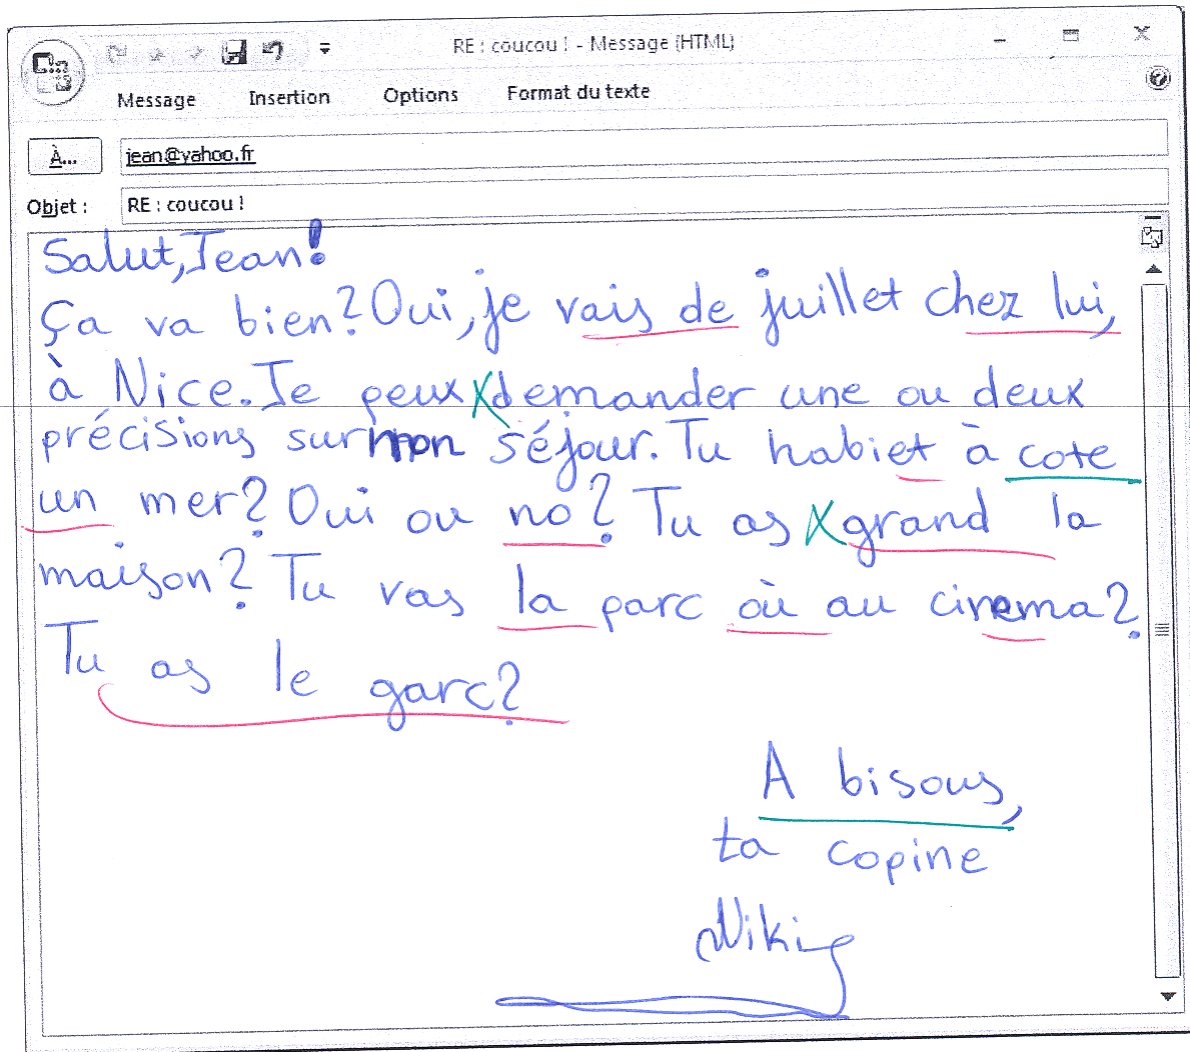 RE : coucou ! - Message (HTML)
Message Insertion Options Format du texte
À... jean@yahoo.fr
Objet : RE : coucou !
Salut, Jean!
Ça va bien? Oui, je vais de juillet chez lui,
à Nice. Je peux demander une ou deux
précisions sur mon séjour. Tu habiet à cote
un mer? Oui ou no? Tu as grand la
maison? Tu vas la parc où au cinema?
Tu as le garc?
A bisous,
ta copine
Niki